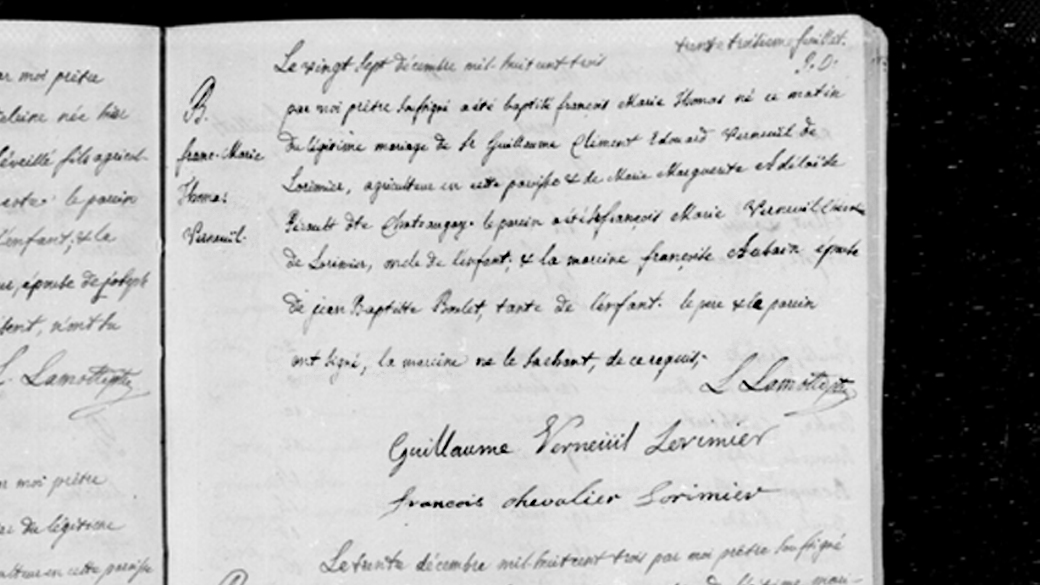 ar moi prêtre
née hier
éveillé fils agricul-
le parain
l'enfant, & la
épouse de joseph
n'ont su
L. Lamotte ptre
n moi prêtre
du légitime
en cette paroisse
trente troisieme feuillet.
Le vingt sept décembre mil huit cent trois
par moi prêtre soussigné a été baptisé françois Marie Thomas né ce matin
du légitime mariage de Sr Guillaume Clément Edouard Verneuil de
Lorimier, agriculteur en cette paroisse & de Marie Marguerite Adelaïde
Perault dte Chatauguay. le parain a été Sr françois Marie Verneuil
de Lorimier, oncle de l'enfant, & la maraine françoise Aubain epouse
de jean Baptiste Boulet, tante de l'enfant. le pere & le parain
ont signé, la maraine ne le sachant, de ce requis.
B.
franc-Marie
Thomas
Verneuil.
L. Lamotte ptre
Guillaume Verneuil Lorimier
francois chevalier Lorimier
Le trente décembre mil huit cent trois par moi prêtre soussigné